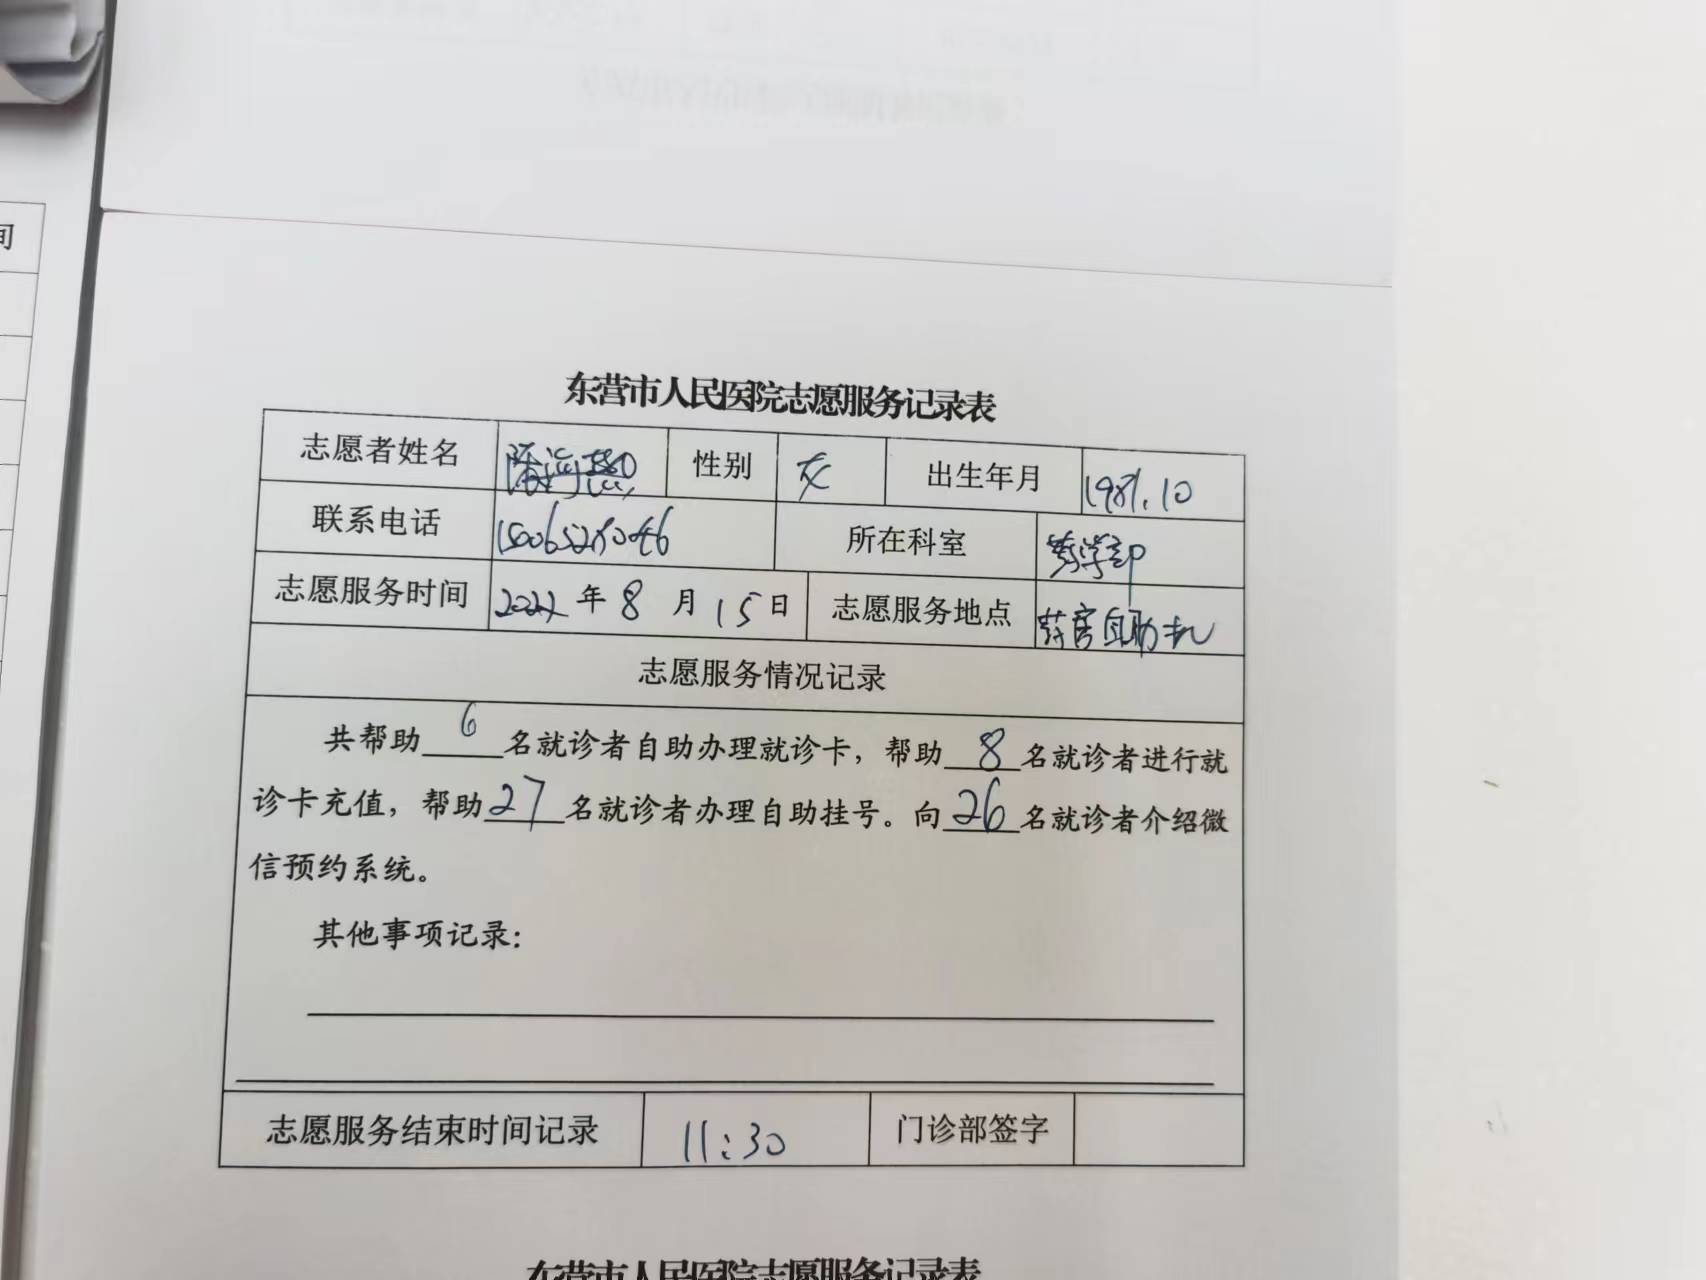 间
东营市人民医院志愿服务记录表
志愿者姓名 陈海燕 性别 女 出生年月 1987.10
联系电话 15006528046 所在科室 药学部
志愿服务时间 2022年8月15日 志愿服务地点 药房自助机
志愿服务情况记录
共帮助6名就诊者自助办理就诊卡，帮助8名就诊者进行就
诊卡充值，帮助27名就诊者办理自助挂号。向26名就诊者介绍微
信预约系统。
其他事项记录：
志愿服务结束时间记录 11:30 门诊部签字
东营市人民医院志愿服务记录表